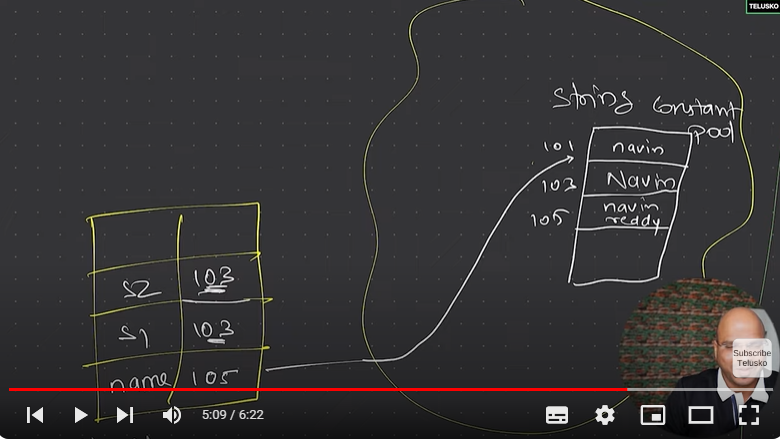 TELUSKO
String Constant
pool
101 navin
103 Navin
105 navin
reddy
s2 103
s1 103
name 105
Subscribe
Telusko
5:09 / 6:22